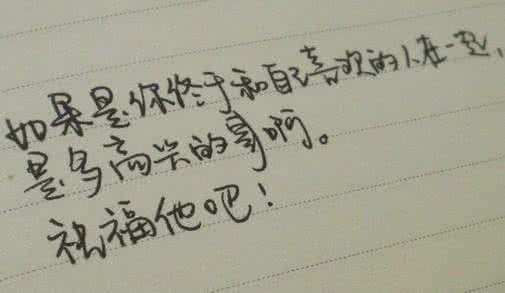 如果是你终于和自己喜欢的人在一起，
是多高兴的事啊。
祝福他吧！